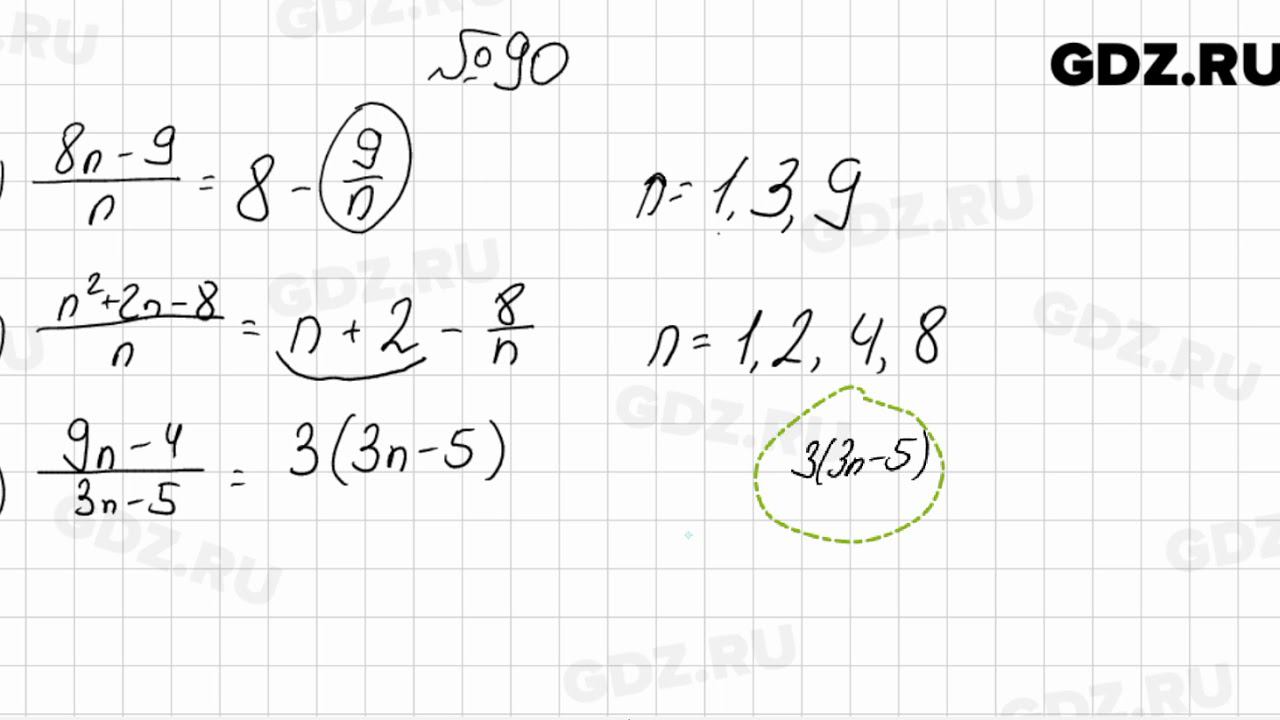 №90
GDZ.RU
) (8n-9)/n = 8 - 9/n n=1,3,9
) (n²+2n-8)/n = n+2 - 8/n n=1,2,4,8
) (9n-4)/(3n-5) = 3(3n-5) 3(3n-5)